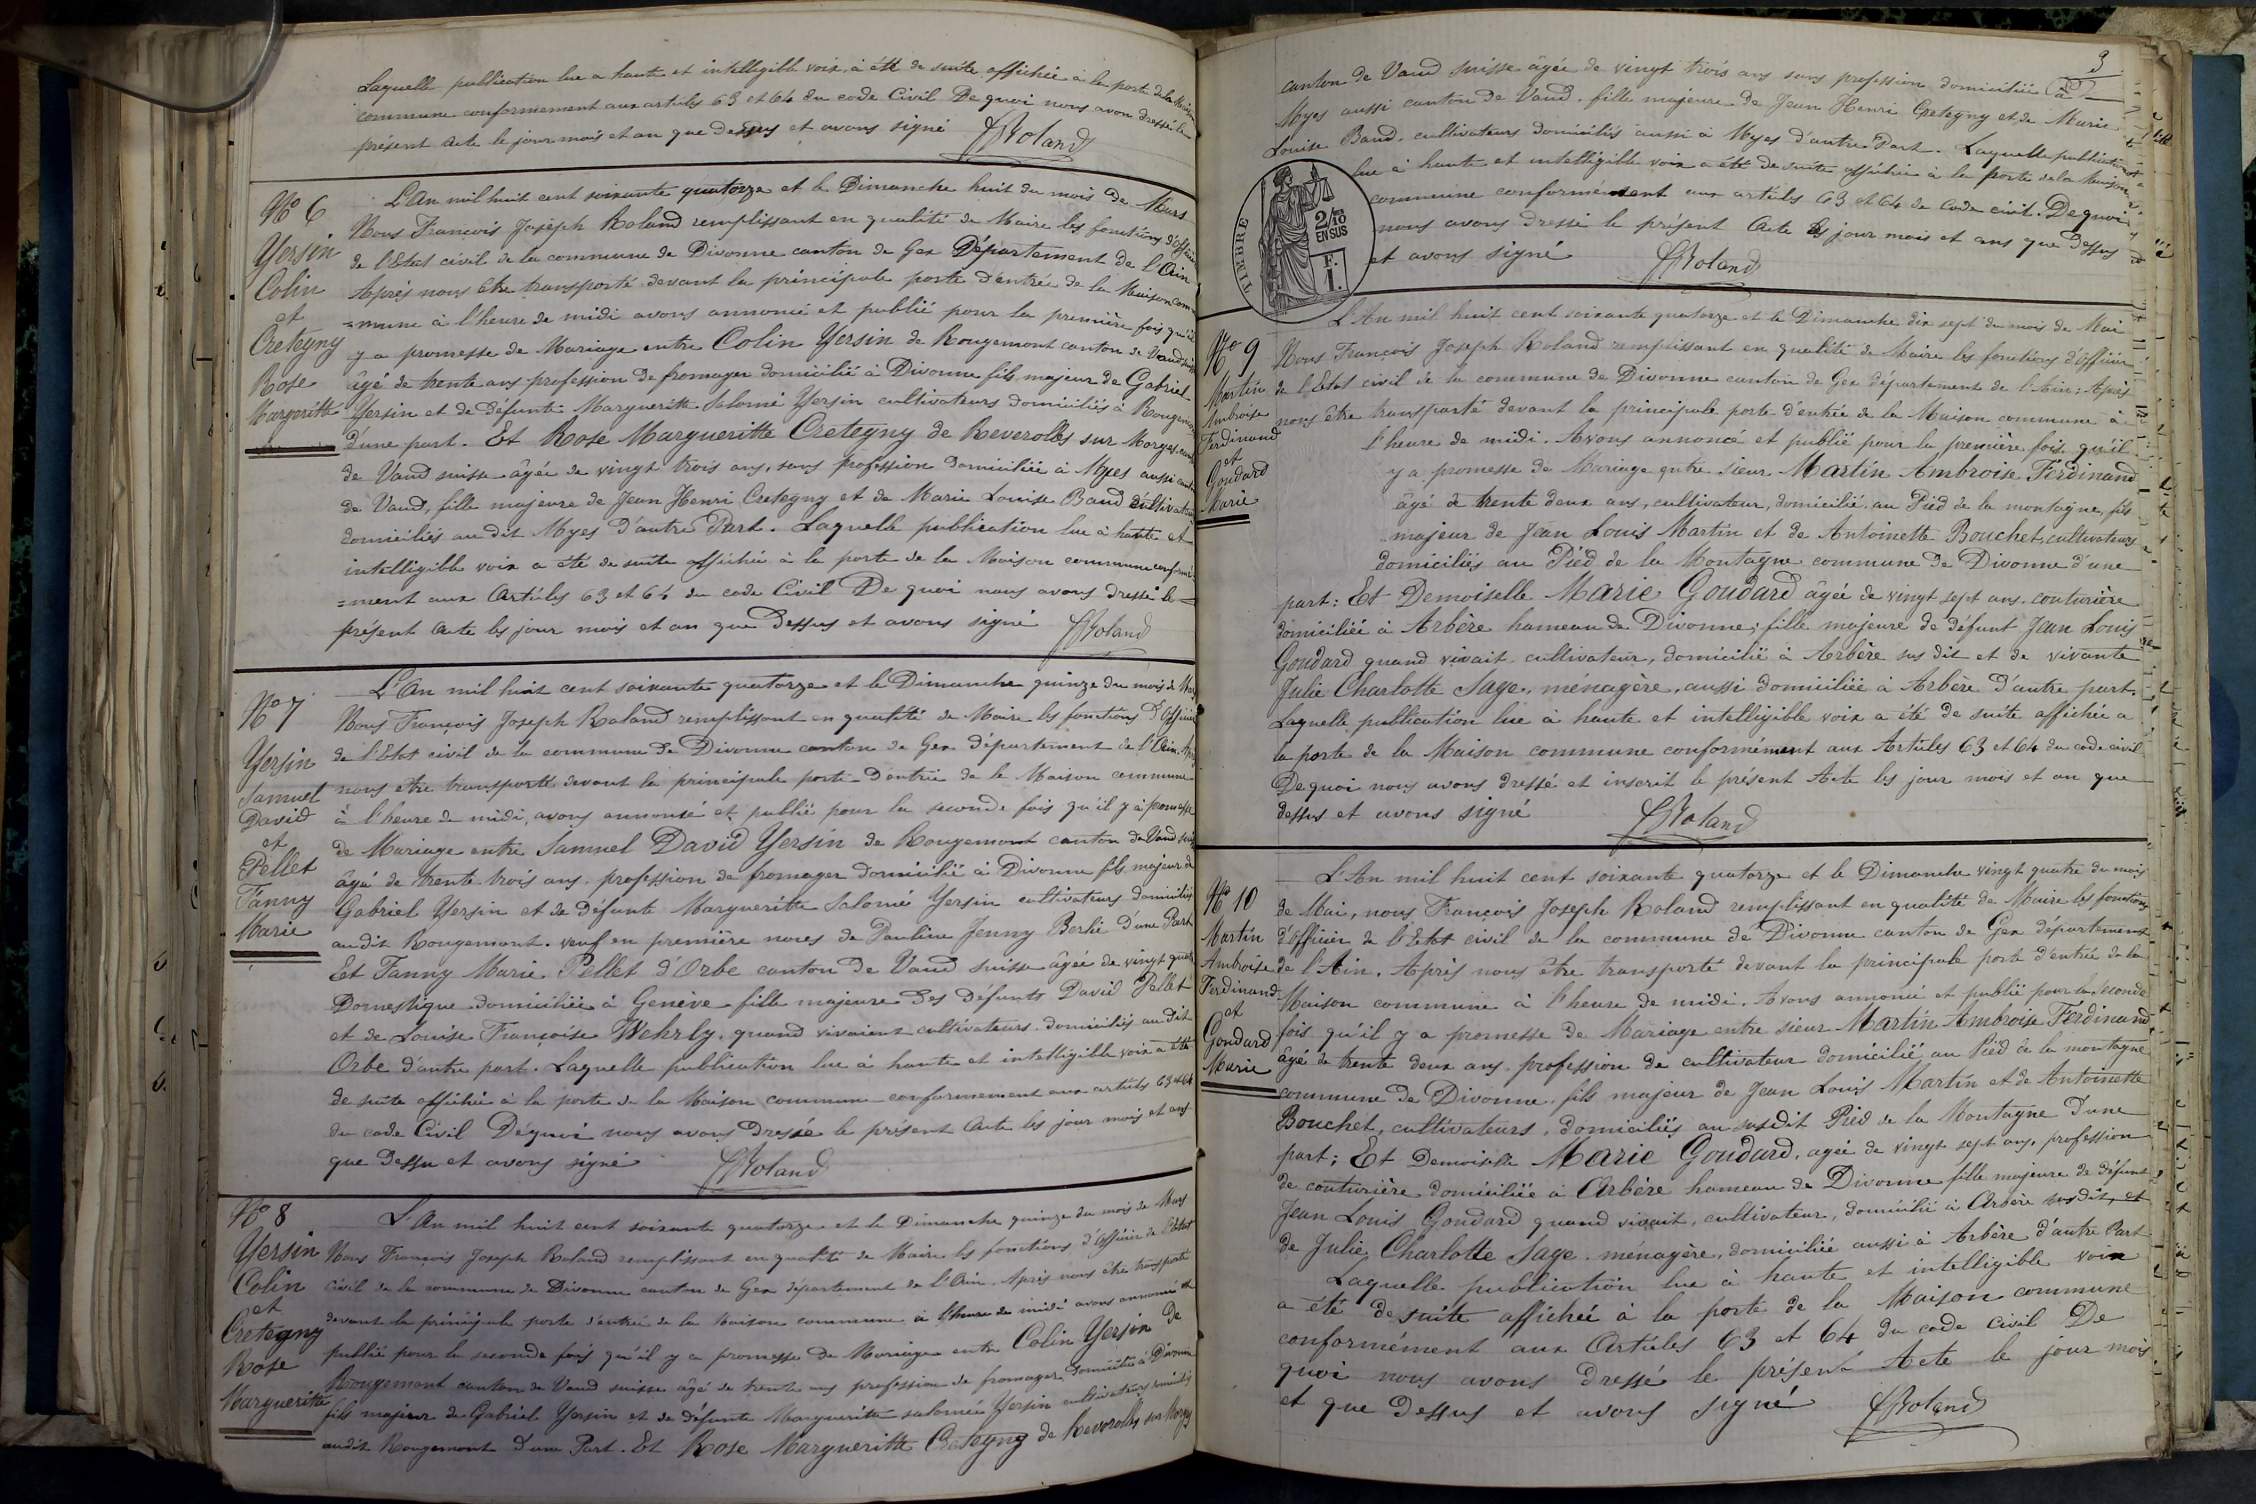 Laquelle publication lue a haute et intelligible voix, à été de suite affichée à la porte de la Maison
commune conformement aux artiles 63 et 64 du code Civil De quoi nous avon dressé le
présent Acte le jour mois et an que dessus et avons signé FRoland
N° 6
Yersin
Colin
et
Cretegny
Rose
Margueritte
L'An mil huit cent soixante quatorze et le Dimanche huit du mois de Mars
Nous François Joseph Roland remplissant en qualité de Maire les fonctions d'Officier
de l'Etat civil de la commune de Divonne canton de Gex Département de l'Ain
Après nous être transporté devant la principale porte d'entrée de la Maison com
=mune à l'heure de midi avons annoncé et publié pour la première fois qu'il
y a promesse de Mariage entre Colin Yersin de Rougemont canton de Vaud suisse
âgé de trente ans profession de fromager domicilié à Divonne fils majeur de Gabriel
Yersin et de défunte Margueritte Salomé Yersin cultivateurs domiciliés à Rougemont
d'une part. Et Rose Margueritte Cretegny de Reverolles sur Morges, canton
de Vaud suisse âgée de vingt trois ans, sans profession domiciliée à Myes aussi canton
de Vaud, fille majeure de Jean Henri Cretegny et de Marie Louise Baud cultivateurs
domiciliés au dit Myes d'autre Part. Laquelle publication lue à haute et
intelligible voix a été de suite affichée à la porte de la Maison commune conformé
=ment aux Artiles 63 et 64 du code Civil De quoi nous avons dressé le
présent Acte les jour mois et an que Dessus et avons signé FRoland
N° 7
Yersin
Samuel
David
et
Pellet
Fanny
Marie
L'An mil huit cent soixante quatorze et le Dimanche quinze du mois de Mars
Nous François Joseph Roland remplissant en qualité de Maire les fonctions d'Officier
de l'Etat civil de la commune de Divonne canton de Gex département de l'Ain. Après
nous etre transporté devant la principale porte d'entrée de la Maison commune
à l'heure de midi, avons annoncé et publié pour la seconde fois qu'il y a promesse
de Mariage entre Samuel David Yersin de Rougemont canton de Vaud suisse
âgé de trente trois ans. profession de fromager domicilié à Divonne fils majeur de
Gabriel Yersin et de défunte Margueritte Salomé Yersin cultivateurs domiciliés
audit Rougemont. veuf en première noces de Pauline Jenny Berlie d'une Part
Et Fanny Marie Pellet d'Orbe canton de Vaud suisse âgée de vingt quatre
Domestique domiciliée à Genève fille majeure des défunts David Pellet
et de Louise Françoise Wehrly. quand vivaient cultivateurs domiciliés au dit
Orbe d'autre part. Laquelle publication lue à haute et intelligible voix a été
de suite affichée à la porte de la Maison commune conformement aux artiles 63 et 64
du code Civil De quoi nous avons dressé le présent Acte les jour mois et ans
que Dessu et avons signé FRoland
N° 8
Yersin
Colin
et
Cretegny
Rose
Margueritte
L'An mil huit cent soixante quatorze et le Dimanche quinze du mois de Mars
Nous François Joseph Roland remplissant en qualité de Maire les fonctions d'Officier de l'Etat
civil de la commune de Divonne canton de Gex département de l'Ain. Après nous être transporté
devant la principale porte d'entrée de la Maison commune à l'heure de midi avons annoncé et
publié pour la seconde fois qu'il y a promesse de Mariage entre Colin Yersin de
Rougemont canton de Vaud suisse âgé de trente ans profession de fromager domicilié à Divonne
fils majeur de Gabriel Yersin et de défunte Margueritte salomé Yersin cultivateurs domiciliés
audit Rougemont d'une Part. Et Rose Margueritte Cretegny de Reverolles sur Morges
3
canton de Vaud suisse âgée de vingt trois ans sans profession domiciliée à
Myes aussi canton de Vaud. fille majeure de Jean Henri Cretegny et de Marie
Louise Baud. cultivateurs domiciliés aussi à Myes d'autre Part. Laquelle publication
lue à haute et intelligible voix a été de suite affichée à la porte de la Maison
commune conformément aux artiles 63 et 64 de Code civil. De quoi
nous avons dressé le présent Acte les jour mois et ans que Dessus
et avons signé FRoland
TIMBRE
2/10
EN SUS
F.
1.
N° 9
Martin
Ambroise
Ferdinand
et
Goudard
Marie
L'An mil huit cent soixante quatorze et le Dimanche dix sept du mois de Mai
Nous François Joseph Roland remplissant en qualité de Maire les fonctions d'Officier
de l'Etat civil de la commune de Divonne canton de Gex département de l'Ain; Après
nous être transporté devant la principale porte d'entrée de la Maison commune à
l'heure de midi. Avons annoncé et publié pour la première fois qu'il
y a promesse de Mariage entre sieur Martin Ambroise Ferdinand
âgé de trente deux ans, cultivateur, domicilié, au Pied de la montagne, fils
majeur de Jean Louis Martin et de Antoinette Bouchet, cultivateurs
domiciliés au Pied de la Montagne commune de Divonne d'une
part: Et Demoiselle Marie Goudard âgée de vingt sept ans. couturière
domiciliée à Arbère hameau de Divonne; fille majeure de défunt Jean Louis
Goudard quand vivait cultivateur, domicilié à Arbère sus dit et de vivante
Julie Charlotte Sage, ménagère, aussi domiciliée à Arbère d'autre part.
Laquelle publication lue à haute et intelligible voix a été de suite affichée a
la porte de la Maison commune conformément aux Artiles 63 et 64 du code civil
De quoi nous avons dressé et inscrit le présent Acte les jour mois et an que
dessus et avons signé FRoland
N° 10
Martin
Ambroise
Ferdinand
et
Goudard
Marie
L'An mil huit cent soixante quatorze et le Dimanche vingt quatre du mois
de Mai, nous François Joseph Roland remplissant en qualité de Maire les fonctions
d'officier de l'Etat civil de la commune de Divonne canton de Gex département
de l'Ain. Après nous être transporté devant la principale porte d'entrée de la
Maison commune à l'heure de midi. Avons annoncé et publié pour la seconde
fois qu'il y a promesse de Mariage entre sieur Martin Ambroise Ferdinand
âgé de trente deux ans. profession de cultivateur domicilié au Pied de la montagne
commune de Divonne. fils majeur de Jean Louis Martin et de Antoinette
Bouchet, cultivateurs. domiciliés au susdit Pied de la Montagne d'une
part; Et Demoiselle Marie Goudard, agée de vingt sept ans, profession
de couturière domiciliée à Arbère hameau de Divonne fille majeure de défunt
Jean Louis Goudard quand vivait, cultivateur, domicilié à Arbère susdit, et
de Julie Charlotte Sage. ménagère, domiciliée aussi à Arbère d'autre Part
Laquelle publication lue à haute et intelligible voix
a été de suite affichée à la porte de la Maison commune
conformément aux Artiles 63 et 64 du code civil De
quoi nous avons dressé le présent Acte le jour mois
et que Dessus et avons signé FRoland